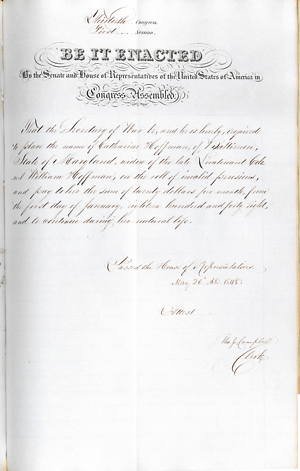 Thirtieth Congress
First Session.
BE IT ENACTED
By the Senate and House of Representatives of the United States of America in
Congress Assembled
That the Secretary of War be, and he is hereby, required
to place the name of Catharine Hoffman, of Baltimore,
State of Maryland, widow of the late Lieutenant Colo
nel William Hoffman, on the roll of invalid pensions,
and pay to her the sum of twenty dollars per month, from
the first day of January, eighteen hundred and forty eight,
and to continue during her natural life.
Passed the House of Representatives
May 26th AD. 1848.
Attest
Tho J Campbell
Clerk